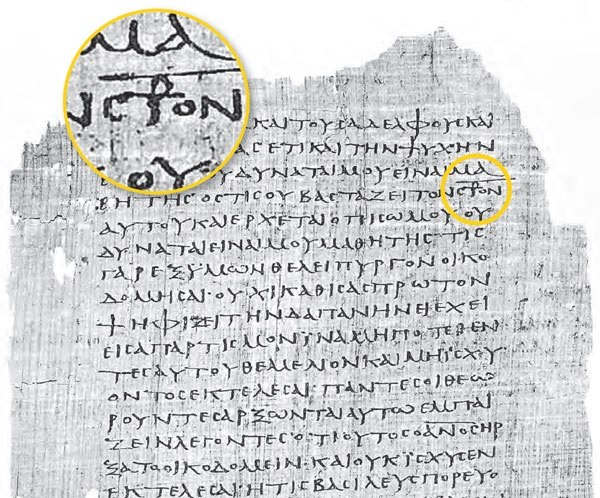 ΜΑ
Ν ϹΤ⳨ΟΝ
ΟΥ
ΚΑΙΤΟΥϹΑΔΕΛΦΟΥϹΚΑΙ
ΑϹΕΤΙΚΑΙΤΗΝΨΥΧΗΝ
ΥΔΥΝΑΤΑΙΜΟΥΕΙΝΑΙΜΑ
ΘΗΤΗϹΟϹΤΙϹΟΥΒΑϹΤΑΖΕΙΤΟΝϹΤ⳨ΟΝ
ΑΥΤΟΥΚΑΙΕΡΧΕΤΑΙΟΠΙϹΩΜΟΥΟΥ
ΔΥΝΑΤΑΙΕΙΝΑΙΜΟΥΜΑΘΗΤΗϹΤΙϹ
ΓΑΡΕΞΥΜΩΝΘΕΛΕΙΠΥΡΓΟΝΟΙΚΟ
ΔΟΜΗϹΑΙ·ΟΥΧΙΚΑΘΙϹΑϹΠΡΩΤΟΝ
ΨΗΦΙΖΕΙΤΗΝΔΑΠΑΝΗΝΕΙΕΧΕΙ
ΕΙϹΑΠΑΡΤΙϹΜΟΝΪΝΑΜΗΠΟΤΕΘΕΝ
ΤΕϹΑΥΤΟΥΘΕΜΕΛΙΟΝΚΑΙΜΗΪϹΧΥ
ΟΝΤΟϹΕΚΤΕΛΕϹΑΙ·ΠΑΝΤΕϹΟΙΘΕΩ
ΡΟΥΝΤΕϹΑΡΞΩΝΤΑΙΑΥΤΩΕΜΠΑΙ
ΖΕΙΝΛΕΓΟΝΤΕϹ·ΟΤΙΟΥΤΟϹΟΑΝΟϹΗΡ
ΞΑΤΟΟΙΚΟΔΟΜΕΙΝ·ΚΑΙΟΥΚΙϹΧΥϹΕΝ
ΕΚΤΕΛΕϹΑΙ·ΗΤΙϹΒΑϹΙΛΕΥϹΠΟΡΕΥΟ